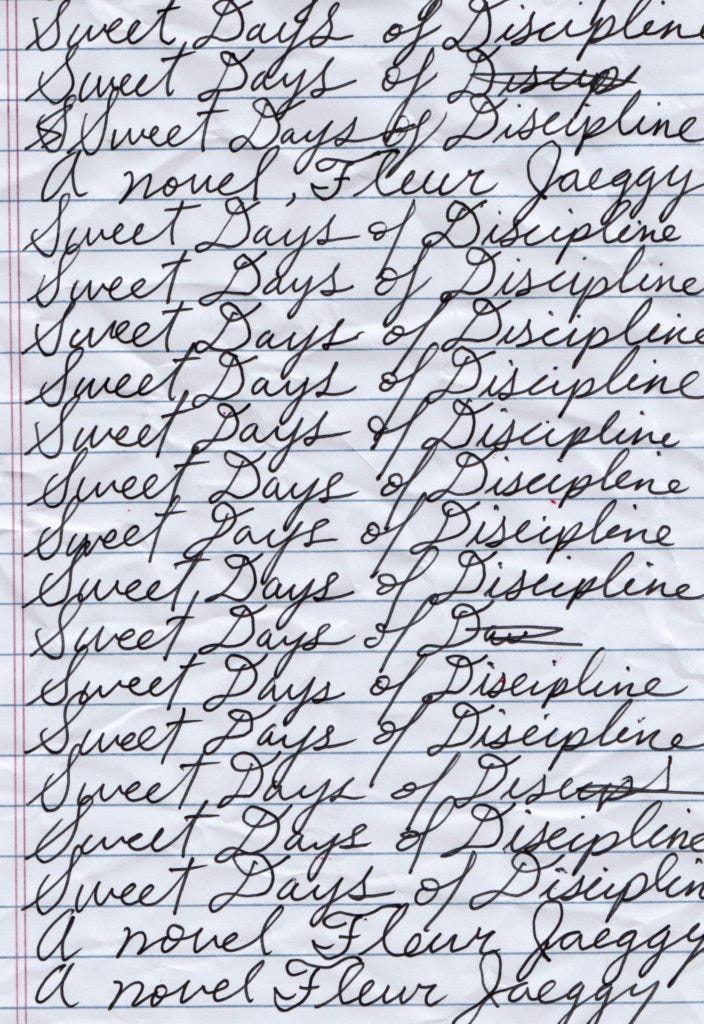 Sweet Days of Discipline
Sweet Days of Discip
S Sweet Days of Discipline
A novel, Fleur Jaeggy
Sweet Days of Discipline
Sweet Days of Discipline
Sweet Days of Discipline
Sweet Days of Discipline
Sweet Days of Discipline
Sweet Days of Discipline
Sweet Days of Discipline
Sweet Days of Discipline
Sweet Days of
Sweet Days of Discipline
Sweet Days of Discipline
Sweet Days of Discip
Sweet Days of Discipline
Sweet Days of Disciplin
A novel Fleur Jaeggy
A novel Fleur Jaeggy